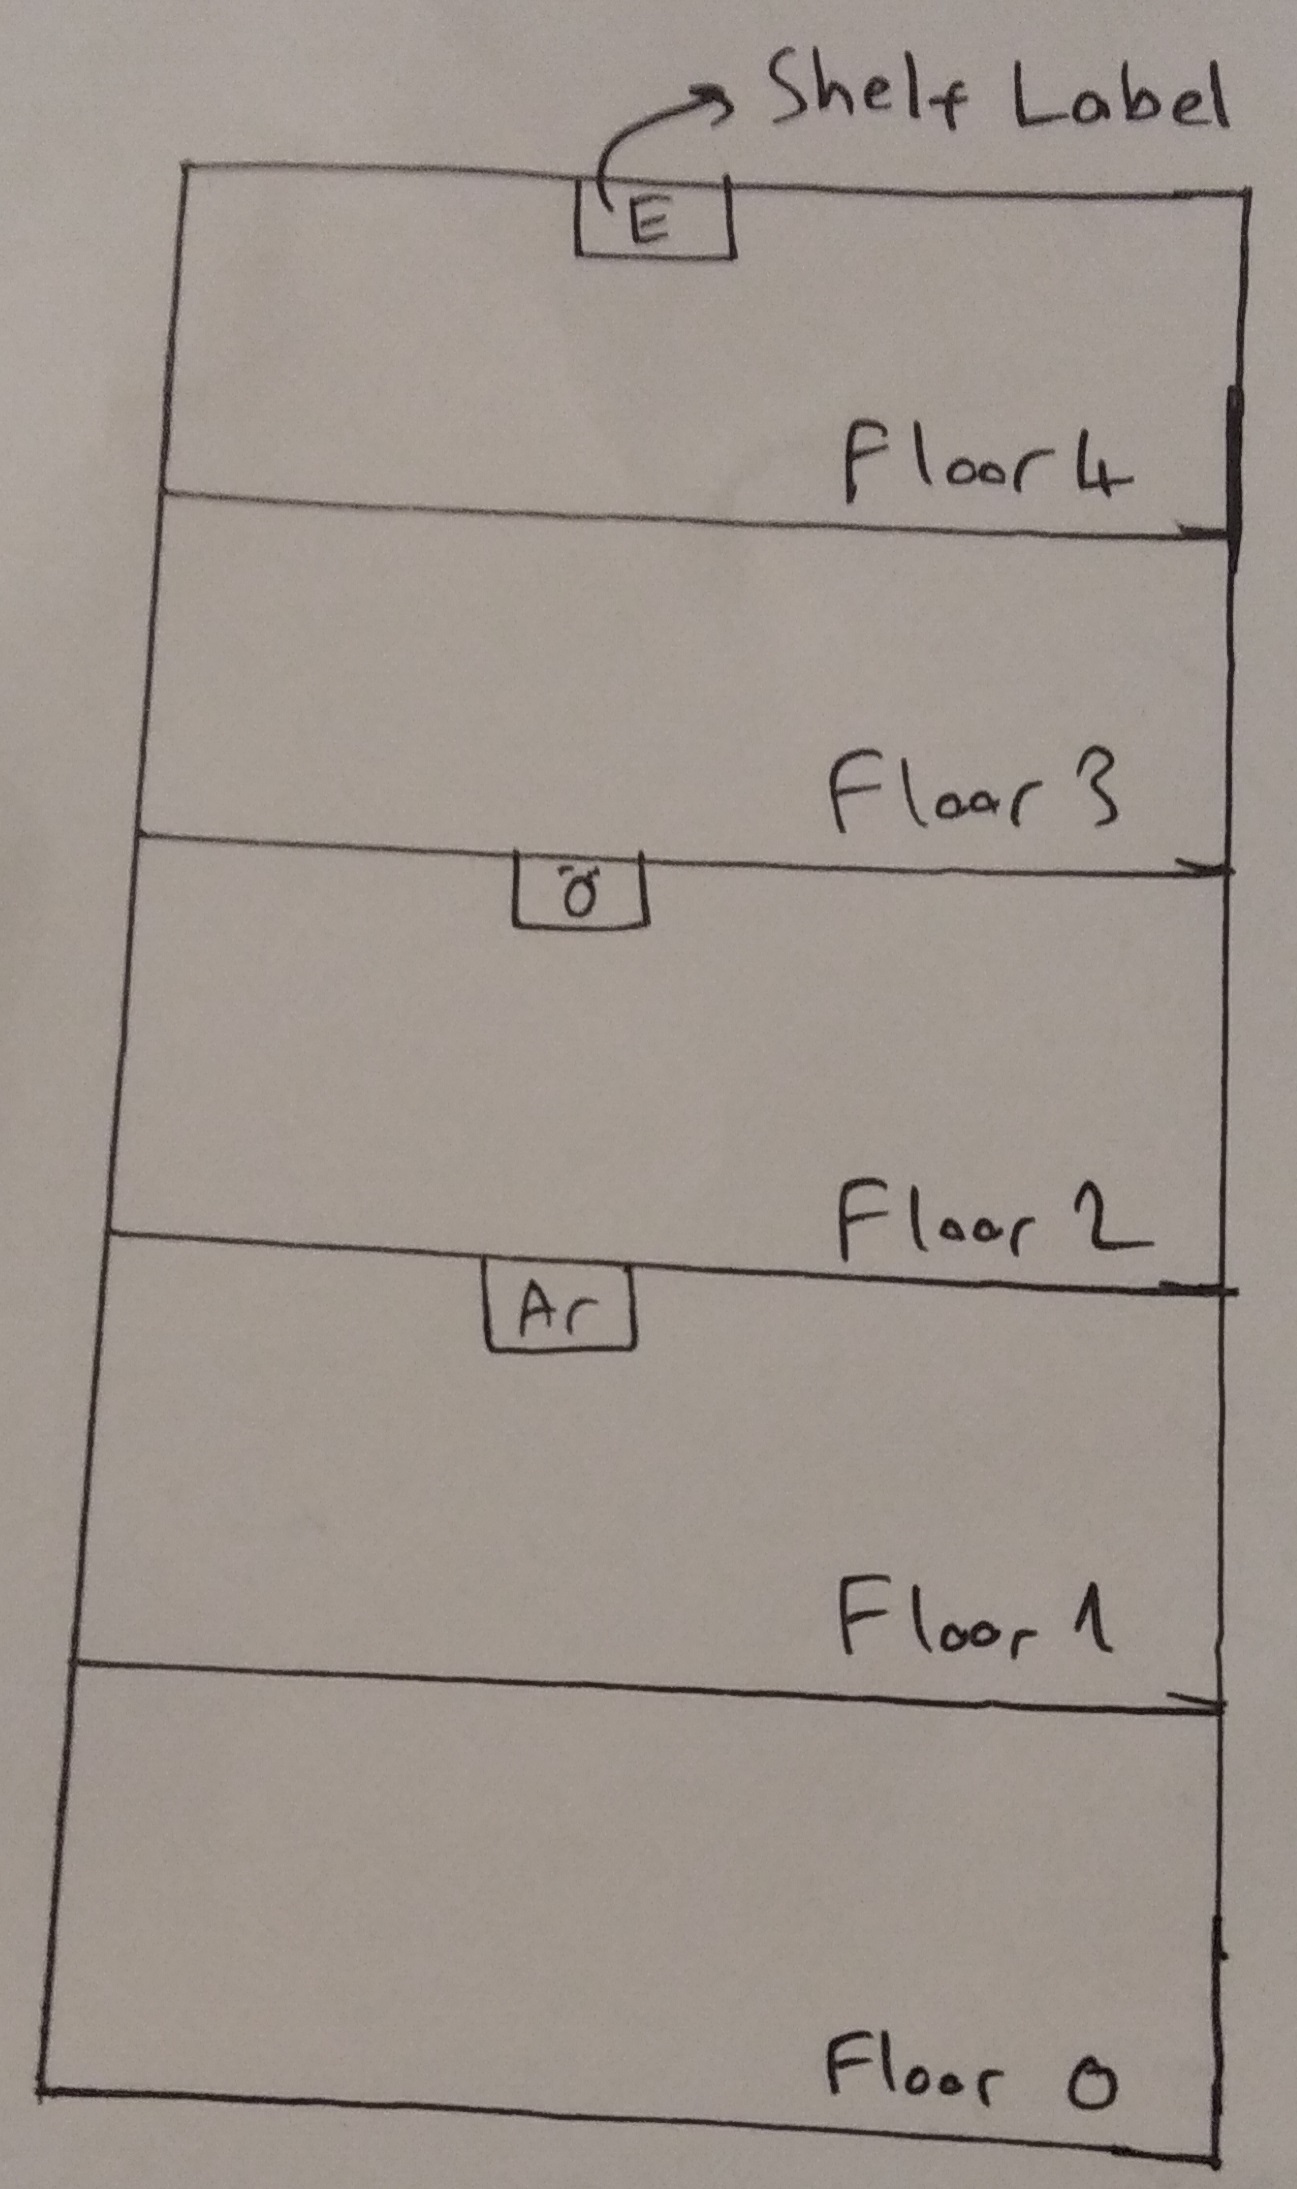 Shelf Label
E
Floor 4
Floor 3
Ö
Floor 2
Ar
Floor 1
Floor 0